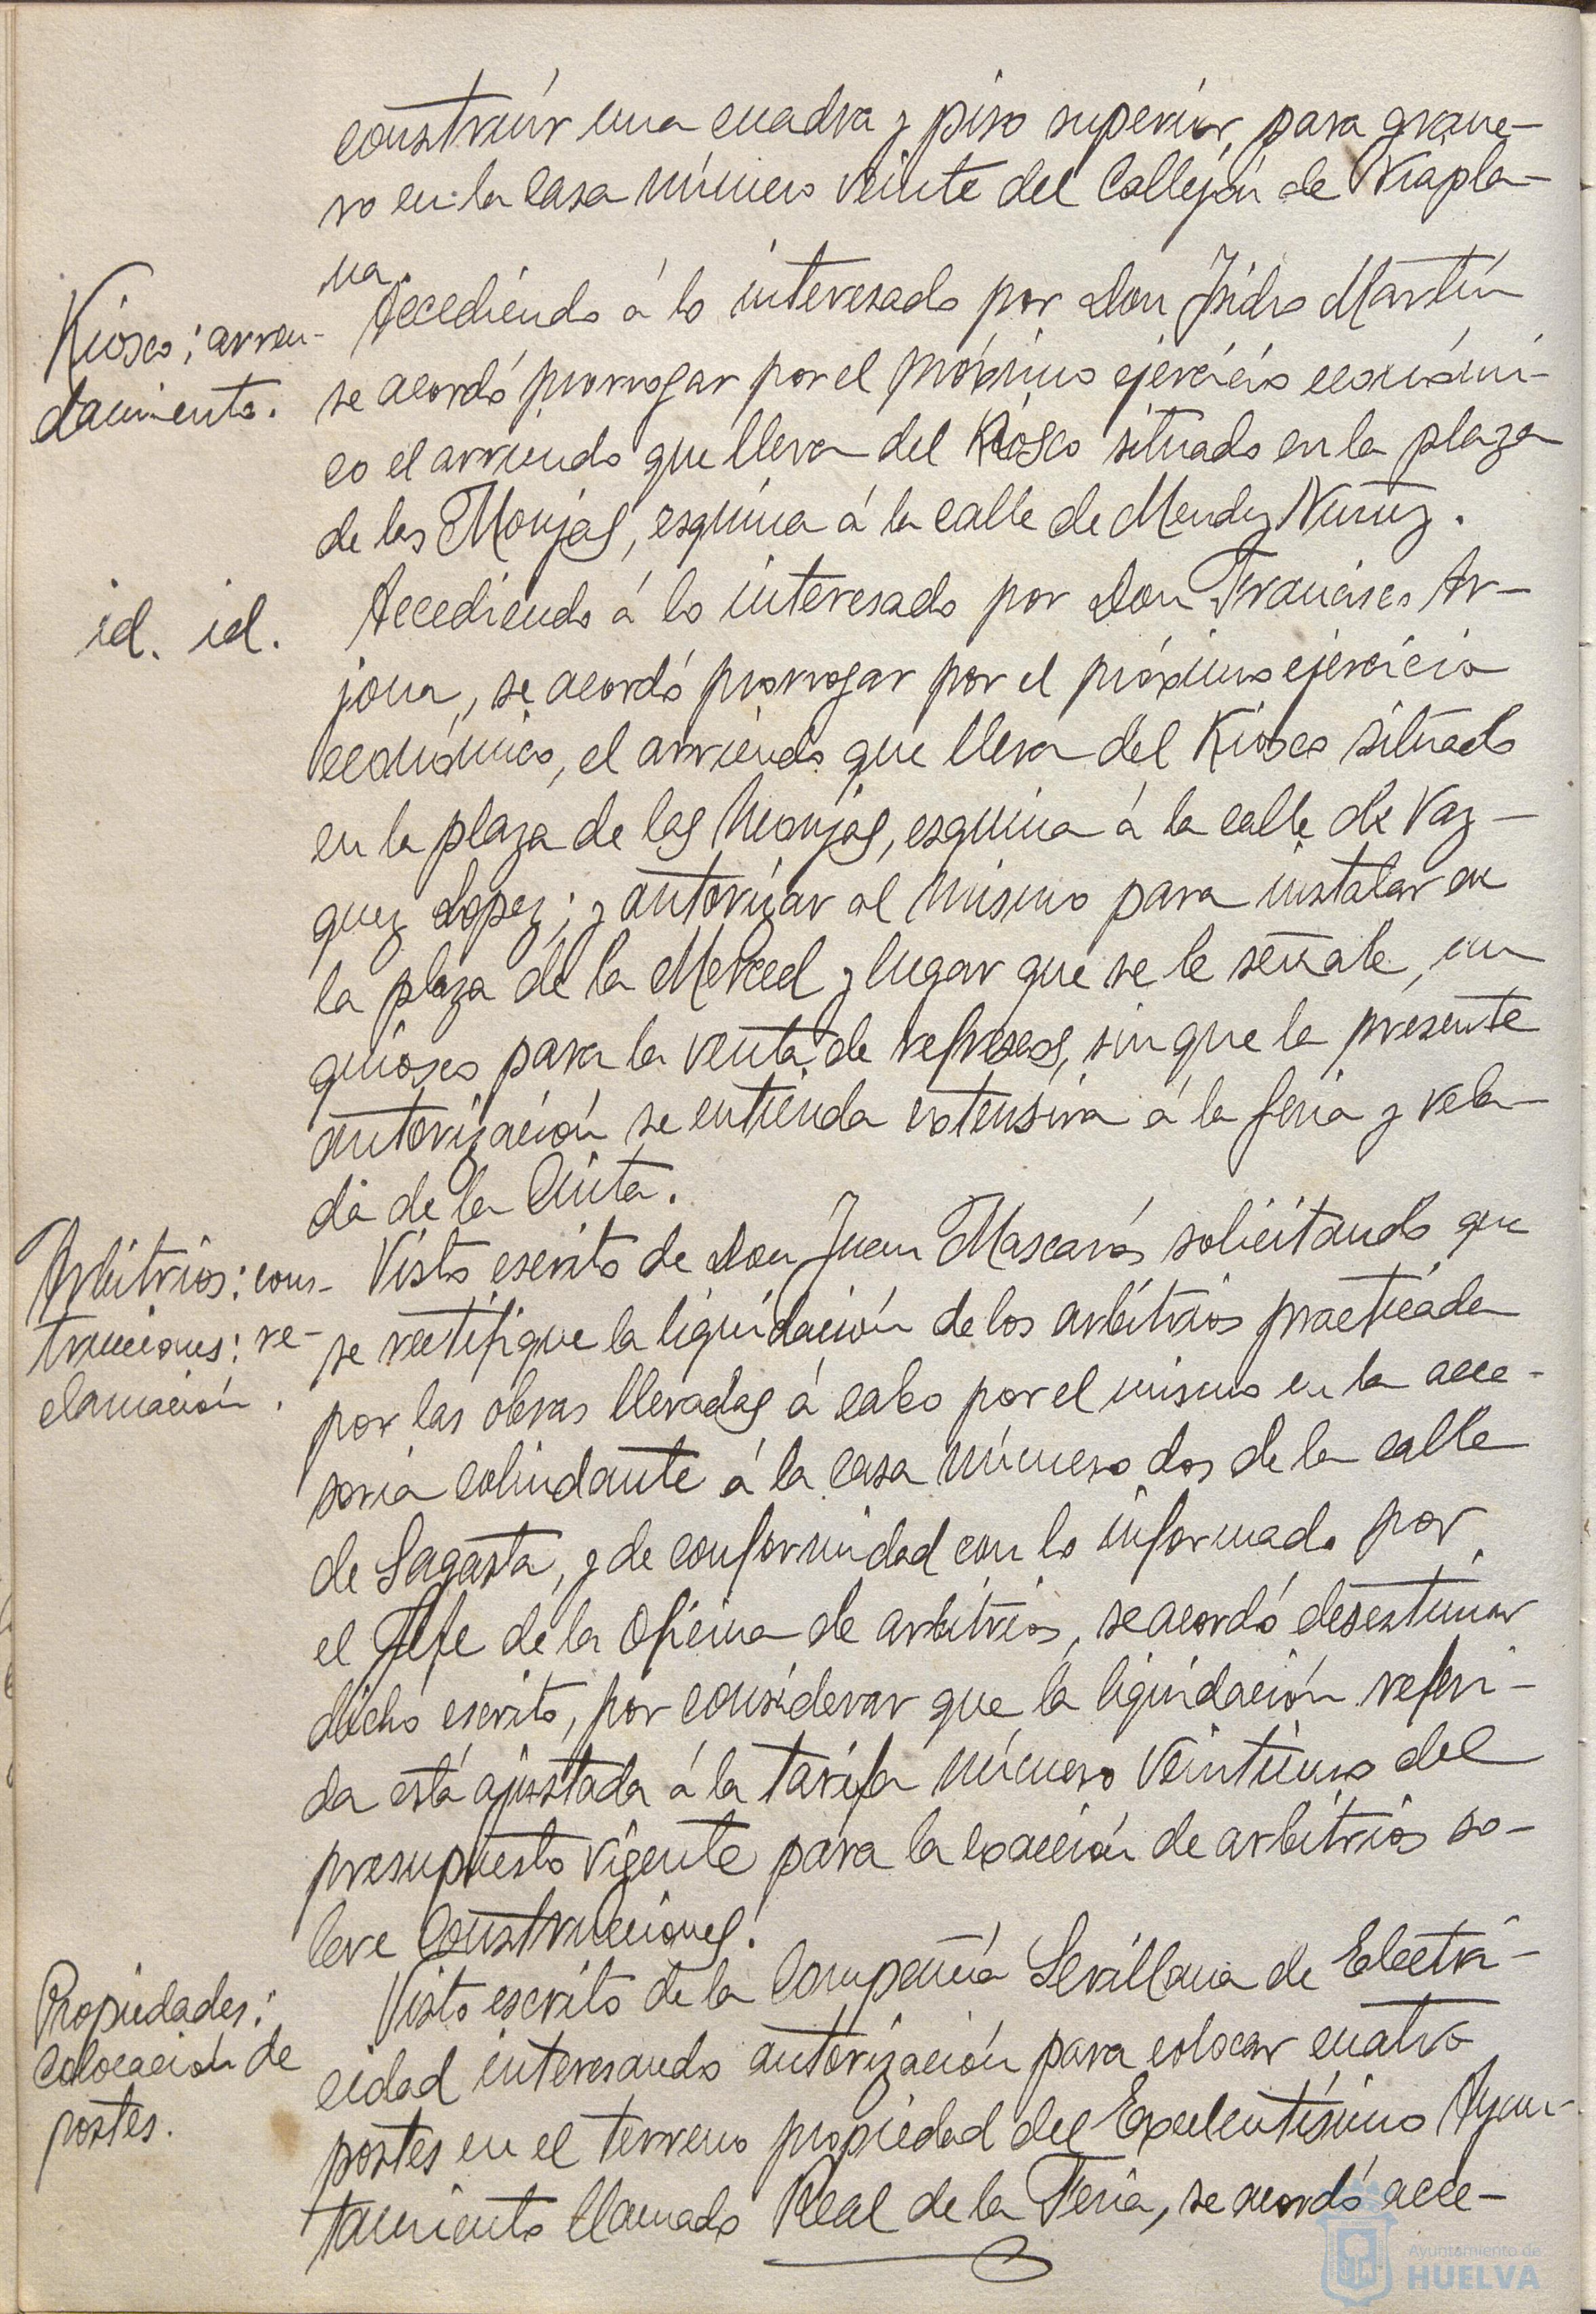 construír una cuadra y piso superior, para grane-
ro en la casa número veinte del Callejón de Viapla-
na.
Kiosco; arren-
damiento.
Accediendo á lo interesado por Don Isidro Martín
se acordó prorrogar por el próximo ejercicio económi-
co el arriendo que lleva del Kiosco situado en la plaza
de las Monjas, esquina á la calle de Mendez Nuñez.
id. id.
Accediendo á lo interesado por Don Francisco Ar-
jona, se acordó prorrogar por el próximo ejercicio
económico, el arriendo que lleva del Kiosco situado
en la plaza de las Monjas, esquina á la calle de Vaz-
quez Lopez; y autorizar al mismo para instalar en
la plaza de la Merced y lugar que se le señale, un
quiosco para la venta de refrescos, sin que la presente
autorización se entienda extensiva á la feria y vela-
da de la Cinta.
Arbitrios: cons-
trucciones: re-
clamación.
Visto escrito de Don Juan Mascarós solicitando que
se rectifique la liquidación de los arbitrios practicada
por las obras llevadas á cabo por el mismo en la acce-
soria colindante á la casa número dos de la calle
de Sagasta, y de conformidad con lo informado por
el Jefe de la Oficina de arbitrios, se acordó desestimar
dicho escrito, por considerar que la liquidación referi-
da está ajustada á la tarifa número veintiuno del
presupuesto vigente para la exacción de arbitrios so-
bre Construcciones.
Propiedades:
colocación de
postes.
Visto escrito de la Compañía Sevillana de Electri-
cidad interesando autorización para colocar cuatro
postes en el terreno propiedad del Excelentísimo Ayun-
tamiento llamado Real de la Feria, se acordó acce-
Ayuntamiento de
HUELVA